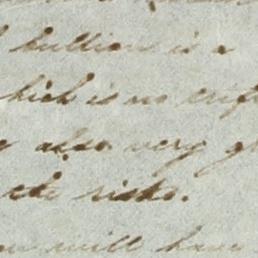 bullion is a
which is no
also very
the risks.
will have